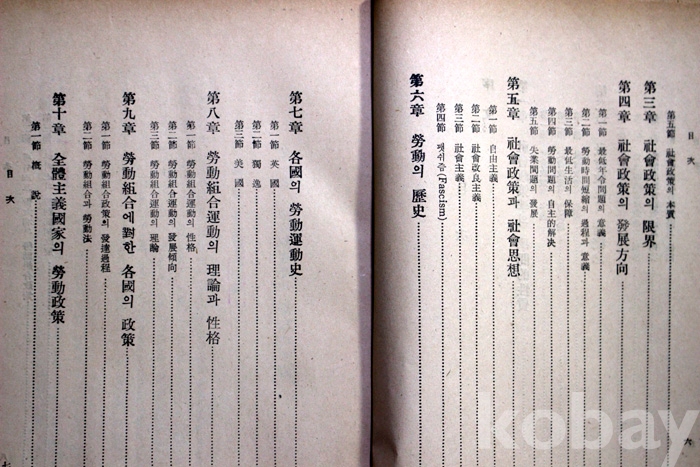 目次
第五節 社會政策의 本質
第三章 社會政策의 限界
第四章 社會政策의 發展方向
第一節 最低年令問題의 意義
第二節 勞動時間短縮의 過程과 意義
第三節 最低生活의 保障
第四節 勞動問題의 自主的解决
第五節 失業問題의 發展
第五章 社會政策과 社會思想
第一節 自由主義
第二節 社會改良主義
第三節 社會主義
第四節 팻쉬즘(Fascism)
第六章 勞動의 歷史
六
第七章 各國의 勞動運動史
第一節 英國
第二節 獨逸
第三節 美國
第八章 勞動組合運動의 理論과 性格
第一節 勞動組合運動의 性格
第二節 勞動組合運動의 發展傾向
第三節 勞動組合運動의 理論
第九章 勞動組合에 對한 各國의 政策
第一節 勞動組合政策의 發達過程
第二節 勞動組合과 勞動法
第十章 全體主義國家의 勞動政策
第一節 槪說
目次
七
kobay